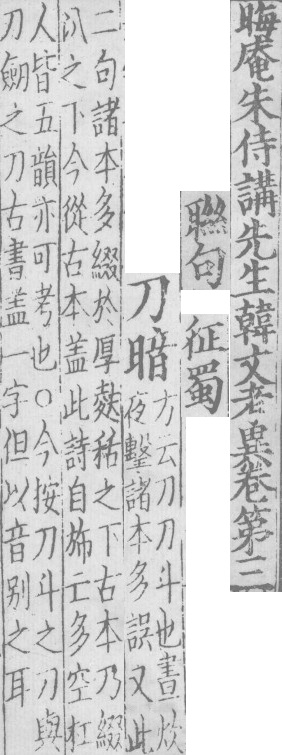 晦庵朱侍講先生韓文考異卷第三
聮句
征蜀
刀暗
方云刀刀斗也晝炊
夜擊諸本多誤又此
二句諸本多綴於厚麩秳之下古本乃綴
汃之下今從古本盖此詩自斾亡多空杠
人皆五韻亦可考也○今按刀斗之刀與
刀劒之刀古書盖一字但以音别之耳